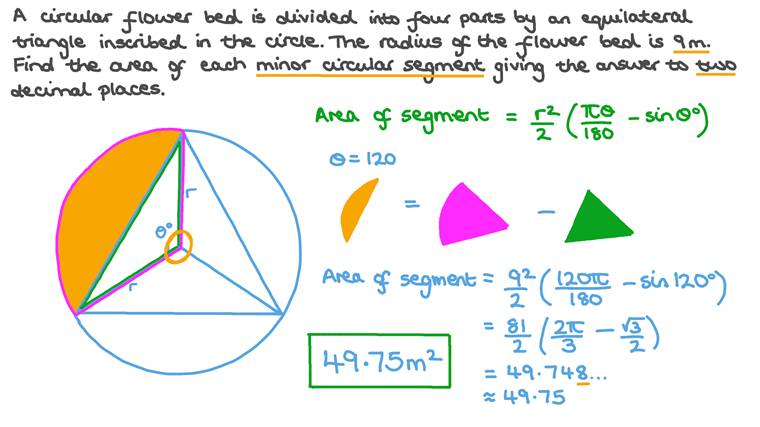 A circular flower bed is divided into four parts by an equilateral
triangle inscribed in the circle. The radius of the flower bed is 9m.
Find the area of each minor circular segment giving the answer to two
decimal places.
Area of segment = r²/2 (πθ/180 − sinθ°)
θ = 120
r
θ°
r
= −
Area of segment = 9²/2 (120π/180 − sin120°)
= 81/2 (2π/3 − √3/2)
= 49.748...
≈ 49.75
49.75m²